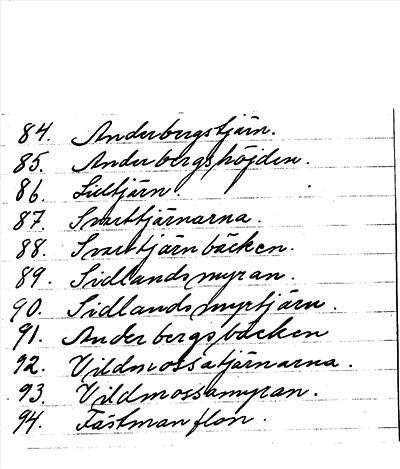 84. Anderbergstjärn.
85. Anderbergshöjden.
86. Lidtjärn.
87. Svarttjärnarna.
88. Svarttjärnbäcken.
89. Sidlandsmyran.
90. Sidlandsmyrtjärn.
91. Anderbergsbäcken
92. Vildmossatjärnarna.
93. Vildmossamyran.
94. Fästmanflon.